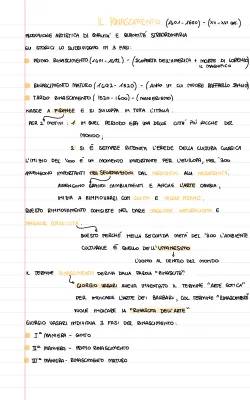 IL RINASCIMENTO (1401-1600) - (XV-XVI sec.)
PRODUZIONE ARTISTICA DI QUALITA' E QUANTITA' STRAORDINARIA
GLI STORICI LO SUDDIVIDONO IN 3 FASI:
PRIMO RINASCIMENTO (1401-1492) - (SCOPERTA DELL'AMERICA + MORTE DI LORENZO IL MAGNIFICO
RINASCIMENTO MATURO (1492-1520) - (ANNO IN CUI MUORE RAFFAELLO SANZIO)
TARDO RINASCIMENTO (1520-1600) - (MANIERISMO)
NASCE A FIRENZE E SI SVILUPPA IN TUTTA L'ITALIA
PER 2 MOTIVI: 1 IN QUEL PERIODO ERA UNA DELLE CITTA' PIU' RICCHE DEL
MONDO;
2 SI E' SEMPRE RITENUTA L'EREDE DELLA CULTURA CLASSICA
L'INIZIO DEL '400 E' UN MOMENTO IMPORTANTE PER L'EUROPA, NEL '300
AVVENGONO IMPORTANTI TRASFORMAZIONI DAL
AVVENGONO GRANDI CAMBIAMENTI E ANCHE L'ARTE CAMBIA,
INIZIA A RINNOVARSI CON GIOTTO E
QUESTO RINNOVAMENTO CONSISTE NEL DARE
QUESTO PERCHE' NELLA SECONDA META' DEL '300 L'AMBIENTE
CULTURALE E' QUELLO DELL'UMANESIMO
L'UOMO AL CENTRO DEL MONDO
IL TERMINE RINASCIMENTO DERIVA DALLA PAROLA "RINASCITA"
GIORGIO VASARI AVEVA INVENTATO IL TERMINE "ARTE GOTICA"
PER INDICARE L'ARTE DEI BARBARI, COL TERMINE "RINASCIMENTO"
VUOLE INDICARE LA "RINASCITA DELL'ARTE"
GIORGIO VASARI INDIVIDUA 3 FASI DEL RINASCIMENTO:
Iª MANIERA - GIOTTO
IIª MANIERA - PRIMO RINASCIMENTO
IIIª MANIERA - RINASCIMENTO MATURO